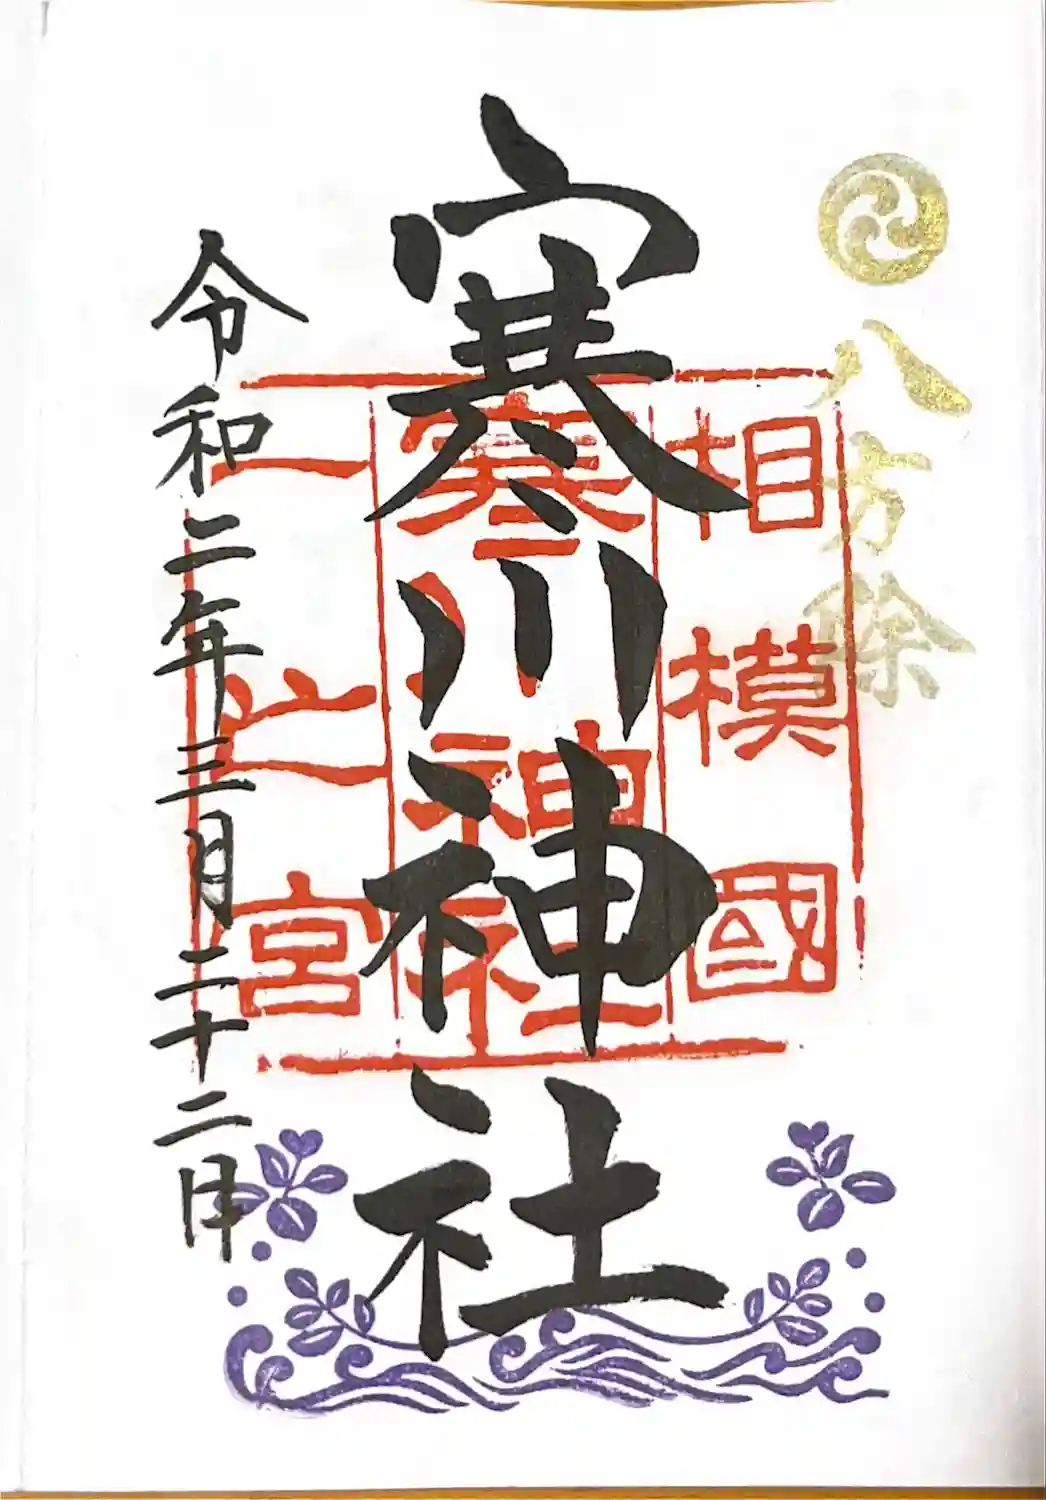 八方除
相模國
寒川神社
一之宮
寒川神社
令和二年三月二十二日